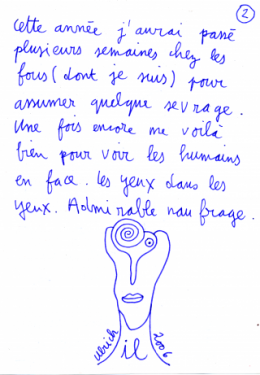 2
cette année j'aurai passé
plusieurs semaines chez les
fous (dont je suis) pour
assumer quelque sevrage.
Une fois encore me voilà
bien pour voir les humains
en face. les yeux dans les
yeux. Admirable naufrage.
ulrich il 2006